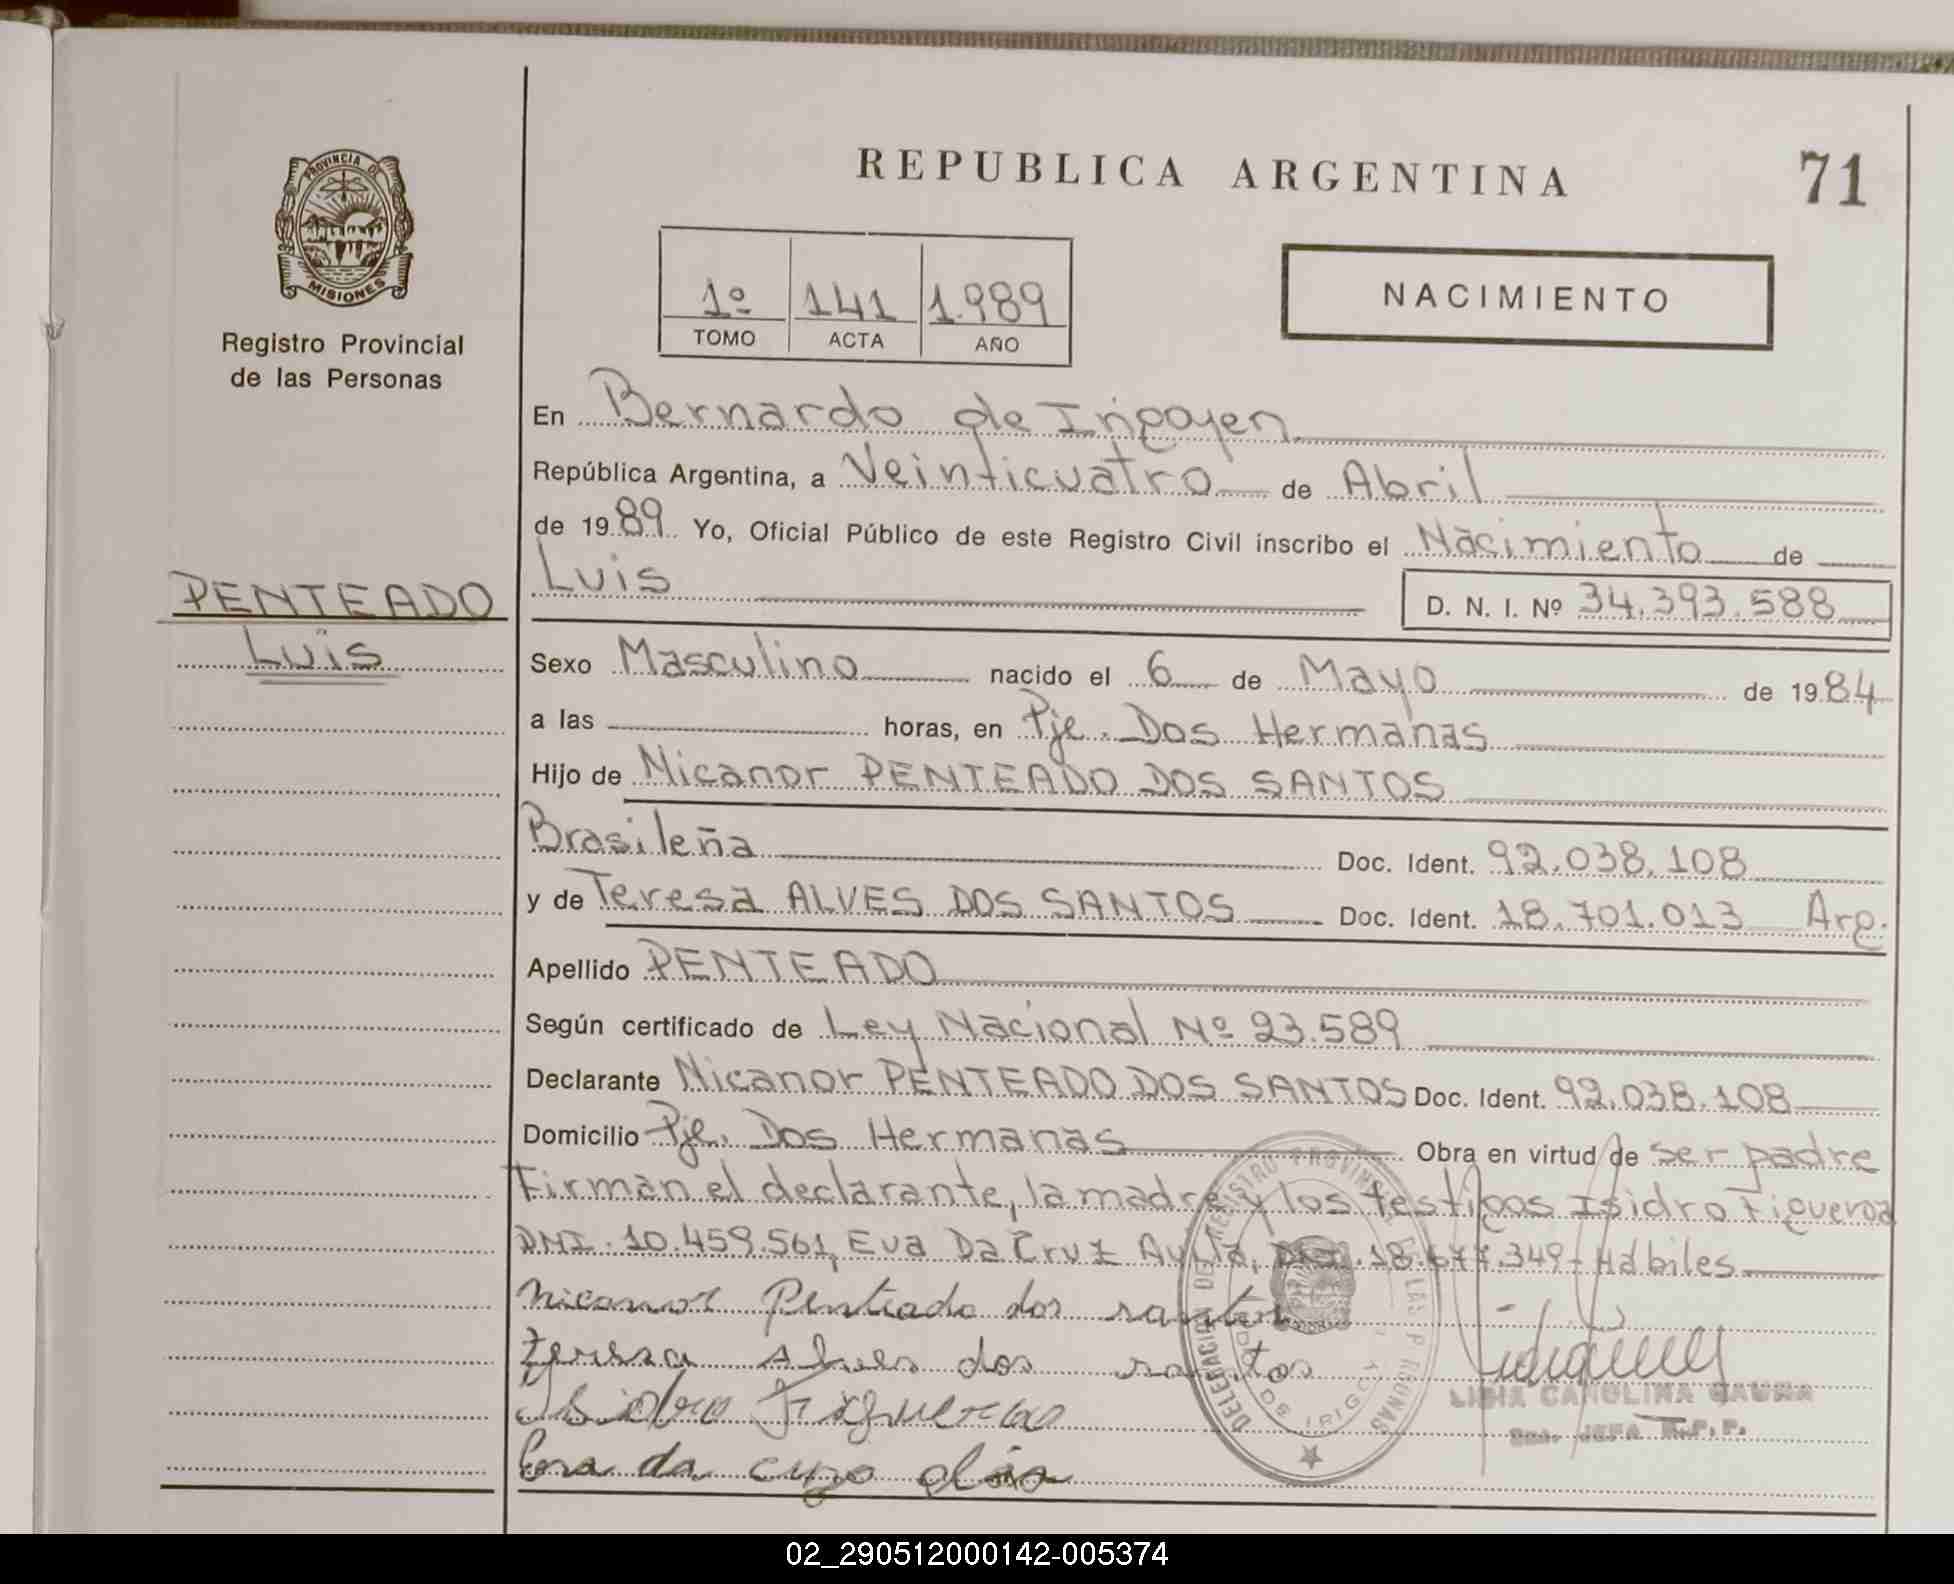 REPUBLICA ARGENTINA
71
PROVINCIA DE
MISIONES
Registro Provincial
de las Personas
1º 141 1.989
TOMO ACTA AÑO
NACIMIENTO
En Bernardo de Irigoyen
República Argentina, a Veinticuatro de Abril
de 1989 Yo, Oficial Público de este Registro Civil inscribo el Nacimiento de
PENTEADO
Luis
Luis D. N. I. Nº 34.393.588
Sexo Masculino nacido el 6 de Mayo de 1984
a las horas, en Pje. Dos Hermanas
Hijo de Nicanor PENTEADO DOS SANTOS
Brasileña Doc. Ident. 92.038.108
y de Teresa ALVES DOS SANTOS Doc. Ident. 18.701.013 Arg.
Apellido PENTEADO
Según certificado de Ley Nacional Nº 23.589
Declarante Nicanor PENTEADO DOS SANTOS Doc. Ident. 92.038.108
Domicilio Pje. Dos Hermanas Obra en virtud de ser padre
Firman el declarante, la madre y los testigos Isidro Figueroa
DNI. 10.459.561, Eva Da Cruz 18.677.349- Hábiles
Nicanor Penteado dos santos
teresa alves dos santos
Isidro Figueroa
Eva da
DELEGACION DEL REGISTRO PROVINCIAL DE LAS PERSONAS
BERNARDO DE IRIGOYEN
CAROLINA
JEFA R.P.P.
02_290512000142-005374